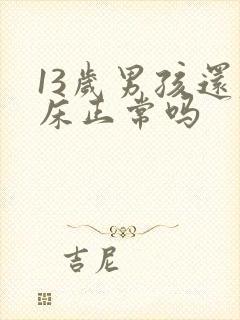 13歲男孩還
床正常吗
吉尼